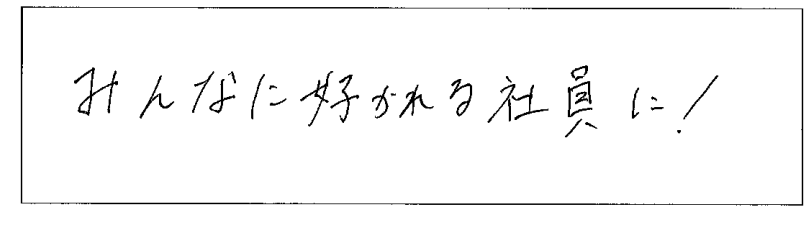 みんなに好かれる社員に!